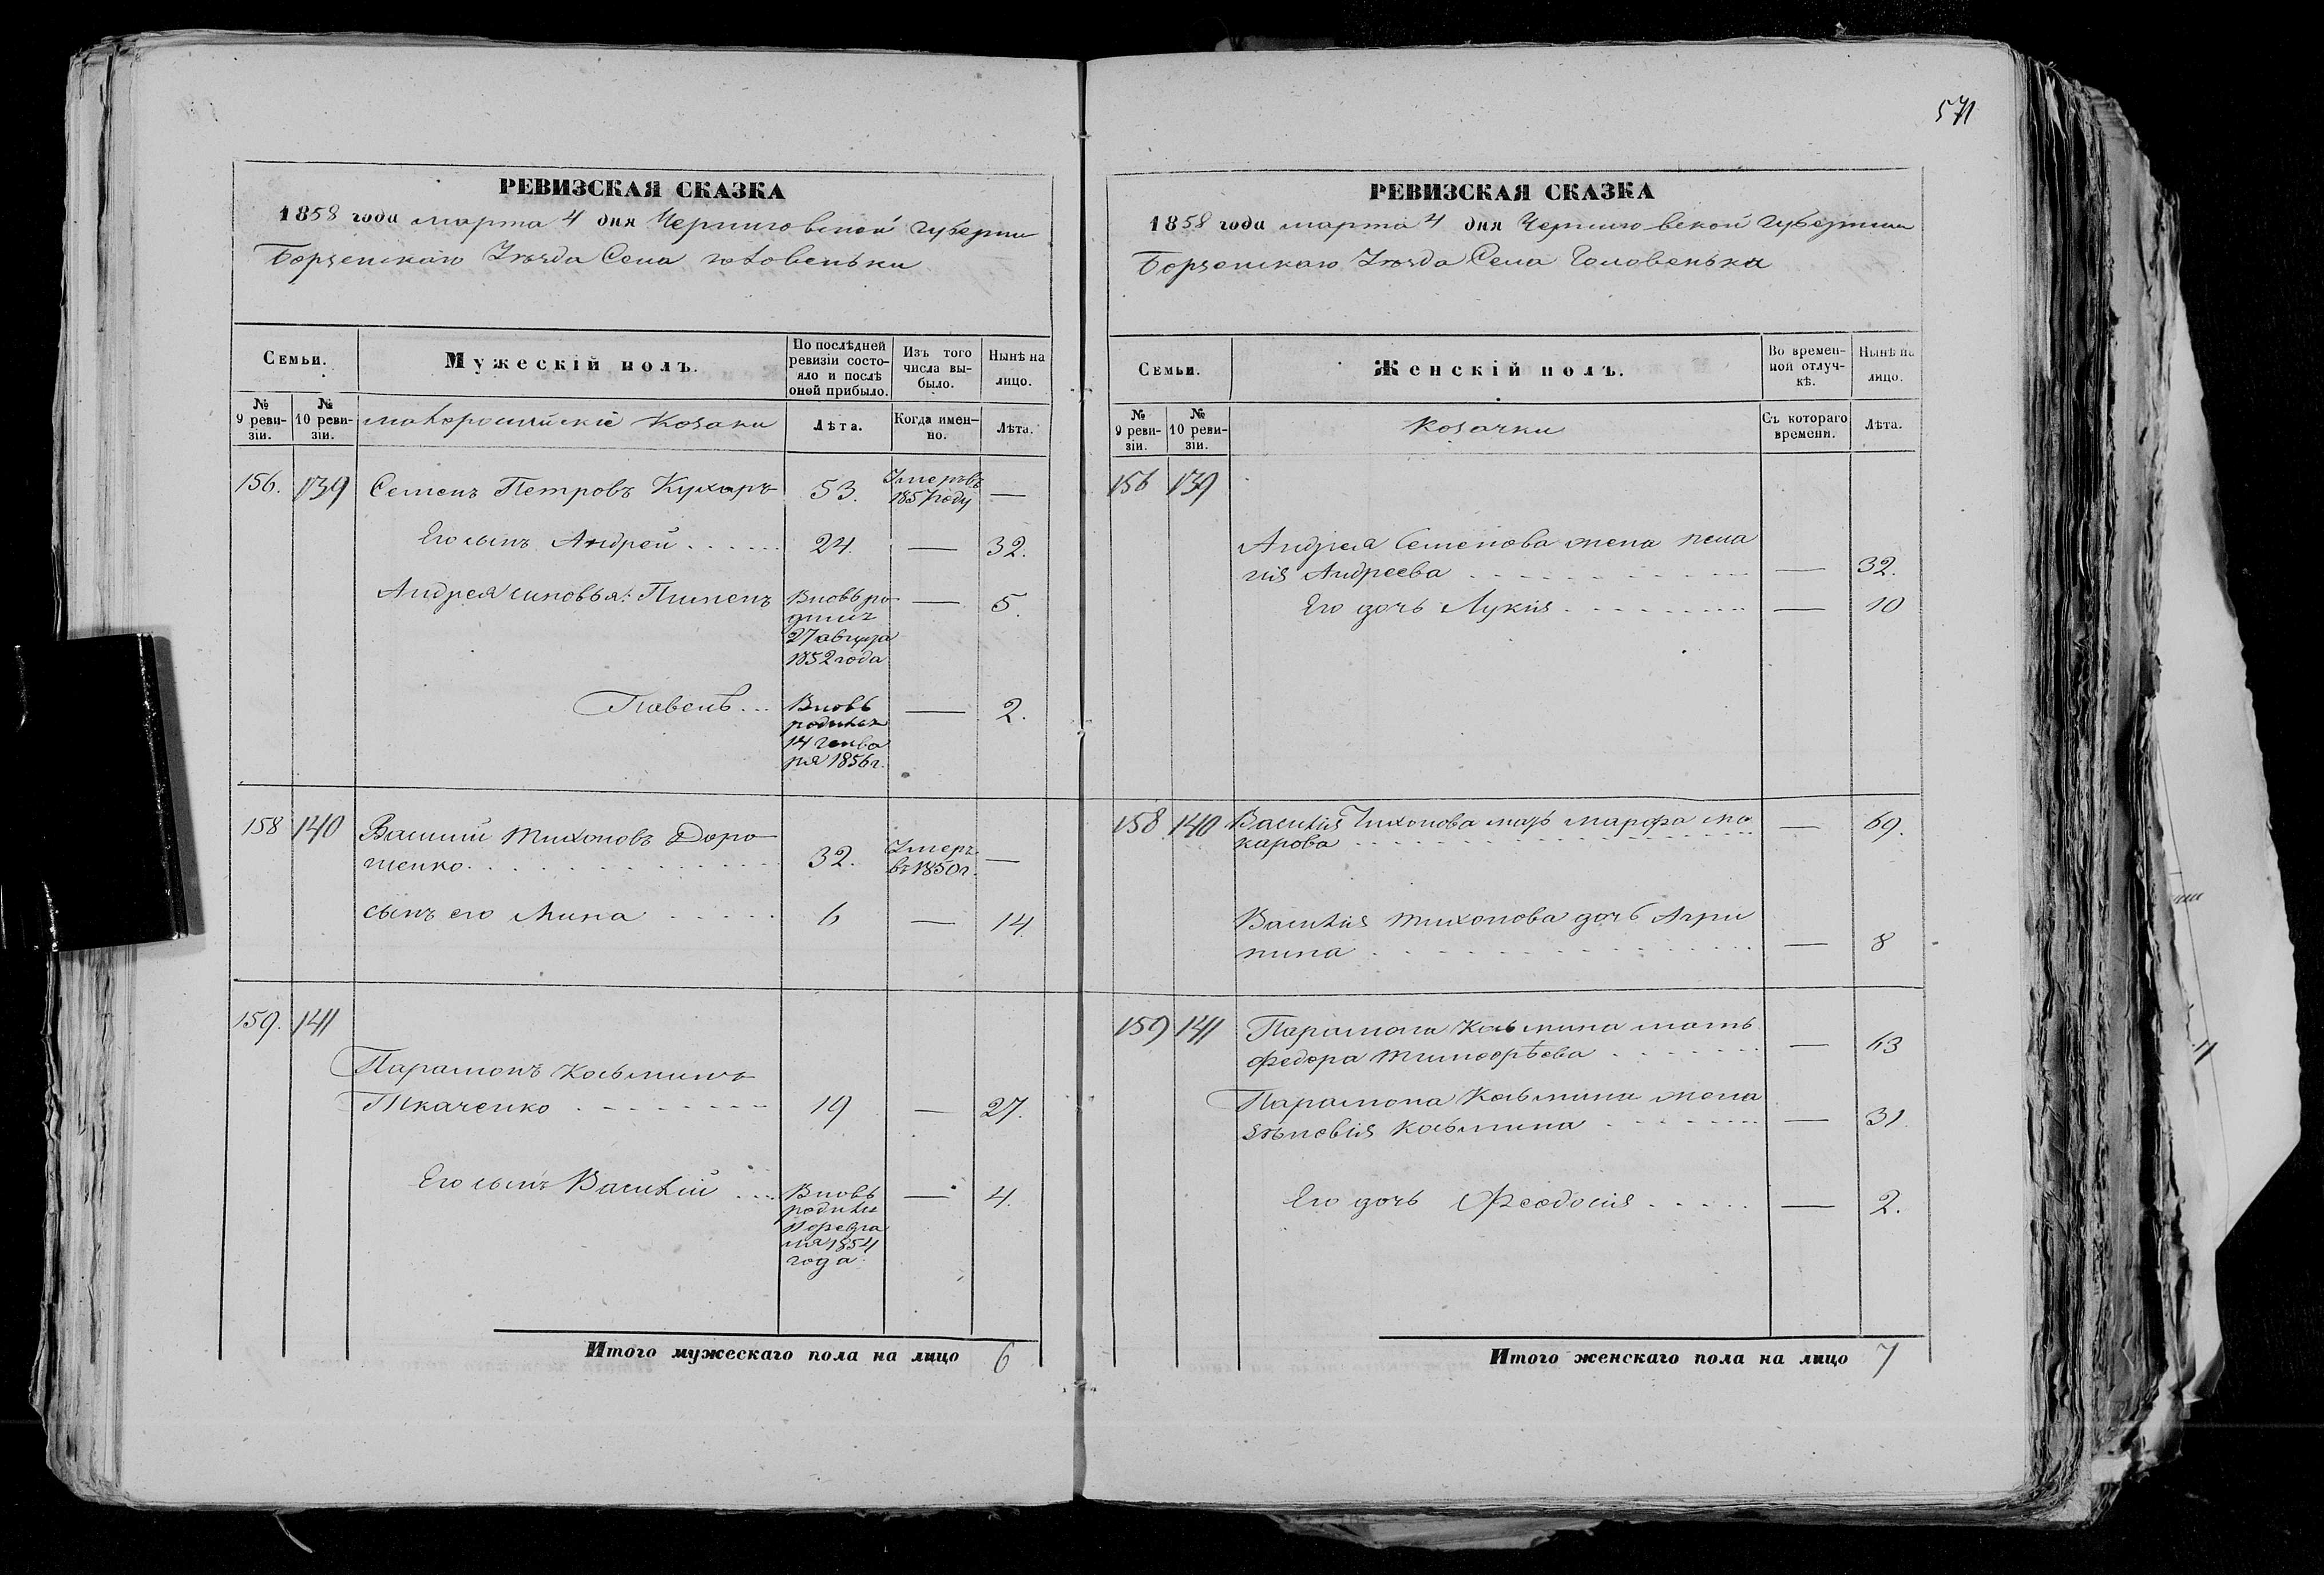 571
РЕВИЗСКАЯ СКАЗКА
1858 года марта 4 дня Черниговской губерніи
Борзенскаго Уѣзда Села головеньки
Семьи.
Мужескій полъ.
По послѣдней ревизіи состо-
яло и послѣ
оной прибыло.
Изъ того
числа вы-
было.
Нынѣ на
лицо.
№
9 реви-
зіи.
№
10 реви-
зіи.
малороссійскіе Козаки
Лѣта.
Когда имен-
но.
Лѣта.
156. 139 Семенъ Петровъ Кухаръ 53. Умеръ въ
1857 году —
Его сынъ Андрей . . . . . . 24. — 32.
Андрея синовья: Пименъ Вновь ро — 5.
дился
27 августа
1852 года
Павелъ . . . Вновь — 2.
родился
14 генва
ря 1856 г.
158 140 Василий Тихоновъ Доро
шенко . . . . . . . . . 32. Умеръ
въ 1850 г. —
сынъ его Мина . . . . . 6 — 14.
159. 141
Парамонъ Козьминъ
Ткаченко . . . . . . . 19 — 27.
Его сынъ Василій . . . Вновь — 4.
родился
11 февра
ля 1854
года
Итого мужескаго пола на лицо 6
РЕВИЗСКАЯ СКАЗКА
1858 года марта 4 дня Черниговской губерніи
Борзенскаго Уѣзда Села Головенька
Семьи.
Женскій полъ.
Во времен-
ной отлуч-
кѣ.
Нынѣ на
лицо.
№
9 реви-
зіи.
№
10 реви-
зіи.
Козачки
Съ котораго
времени.
Лѣта.
156 139
Андрея Семенова жена пела
гія Андреева . . . . . . . . . — 32.
Его дочь Лукія . . . . . . . . — 10
158 140 Василія Тихонова мать марфа ма — 69.
карова . . . . . . . . . . .
Василія Тихонова дочь Агри
пина . . . . . . . . . . . — 8
159 141 Парамона Козьмина мать
федора Тимофѣева . . . . . . — 63
Парамона Козьмина жена
зѣновія Козьмина . . . . . . — 31.
Его дочь Феодосія . . . . . — 2.
Итого женскаго пола на лицо 7